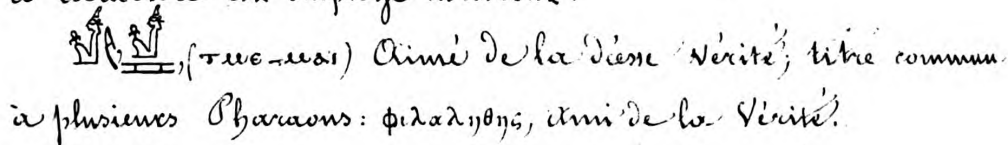 , (ⲧⲙⲉ-ⲙⲁⲓ) Aimé de la déesse Vérité; titre commun
à plusieurs Pharaons: φιλαληθης, Ami de la Vérité.